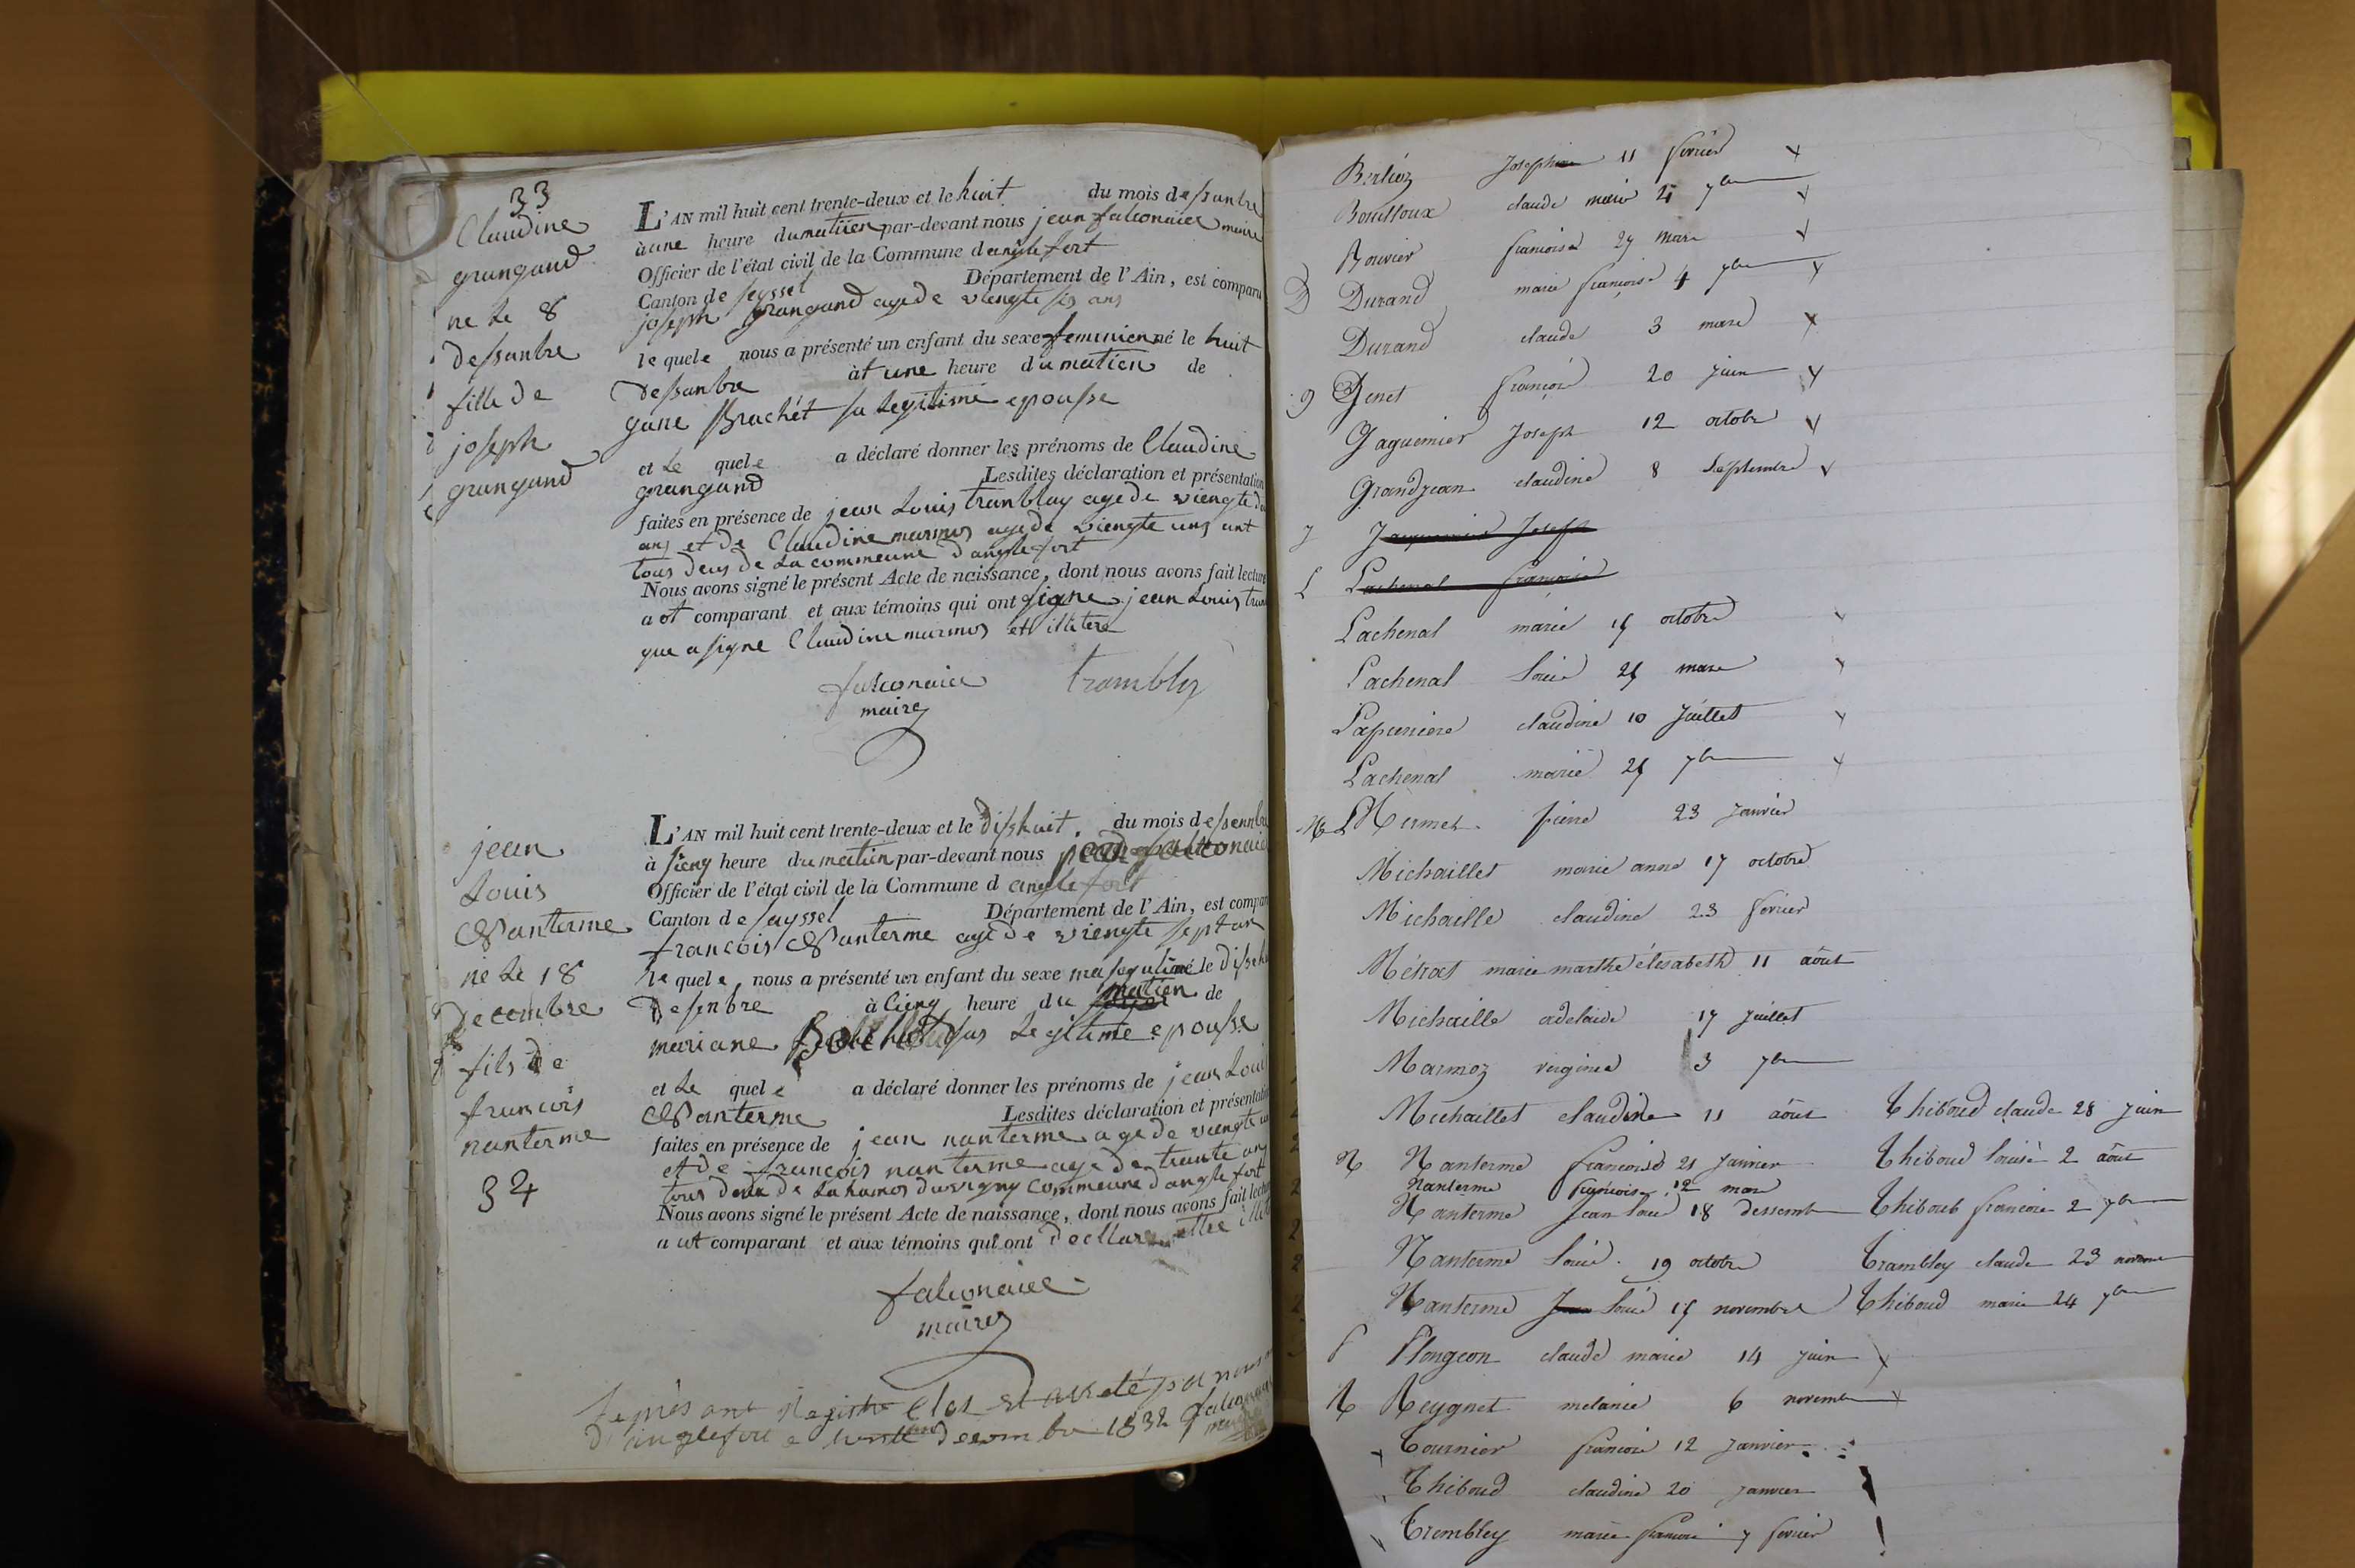 33
Claudine
grangand
ne le 8
dessanbre
fille de
joseph
grangand
L'AN mil huit cent trente-deux et le huit du mois dessanbre
à une heure du matiien par-devant nous jean falconaiee maire
Officier de l'état civil de la Commune d anglefort
Canton de seyssel Département de l'Ain, est comparu
joseph grangand age de viengte sis ans
le quele nous a présenté un enfant du sexe feminien né le huit
dessanbre àt une heure du matien de
gane Brachét sa legitime epousse
et le quele a déclaré donner les prénoms de Claudine
grangand Lesdites déclaration et présentation
faites en présence de jean Louis tranblay age de viengte
ans et de Claudine marmos age de viengte uns ant
tous deus de la commeune d'anglefort
Nous avons signé le présent Acte de naissance, dont nous avons fait lecture
a ot comparant et aux témoins qui ont signe jean Louis
que a signe Claudine marmos et illitere
falconaiee trambley
maire
jean
Louis
Nanterme
né le 18
decembre
fils de
francois
nanterme
34
L'AN mil huit cent trente-deux et le disshuit du mois d
à sienq heure du matiin par-devant nous jean falconaiee
Officier de l'état civil de la Commune d anglefort
Canton de sayssel Département de l'Ain, est compar
francois Nanterme age de viengte sept an
le quele, nous a présenté un enfant du sexe masquline né le
desenbre à cienq heure du matien de
mariane legitime epousse
et le quele a déclaré donner les prénoms de jean Loui
Nanterme Lesdites déclaration et présentation
faites en présence de jean nanterme age de viengte
et de francois nanterme age de trante ans
tous deux de commeune d'anglefort
Nous avons signé le présent Acte de naissance, dont nous avons fait lecture
a ut comparant et aux témoins qui ont decllare
falconaiee
maire
le présant Registre Clos et areté par nous
d'anglefort le decembre 1832 falconaiee
Berlioz Joseph 11 fevrier
Bouilloux claude marie 21 7bre
Bouvier francoise 29 mars
D Durand marie francoise 4 7bre
Durand claude 3 mars
g Genet françois 20 juin
Gaguemier Joseph 12 octobre
Grandjean claudine 8 septembre
J Joseph
L Lachenal francoise
Lachenal marie 15 octobre
Lachenal Louis 25 mars
Lapeniere claudine 10 Juillet
Lachenal marie 25 7bre
M LHermet pierre 23 Janvier
Michaillet marie anne 17 octobre
Michaille claudine 23 fevrier
Métras marie marthe élisabeth 11 aôut
Michaille adelaide 17 Juillet
Marmoz virginie 3 7bre
Michaillet claudine 11 aôut Thiboud claude 28 Juin
N Nanterme francoise 21 Janvier Thiboud Louise 2 aôut
Nanterme francoise 12 mars
Nanterme Jean Louis 18 dessemb Thiboub francois 2 7bre
Nanterme Louis 19 octobre Trambley claude 23
Nanterme Jean Louis 15 novembre Thiboud marie 24 7bre
P Plongeon claude marie 14 juin
R Reygnet melanie 6 novembre
Tournier francois 12 Janvier
Thiboud claudine 20 Janvier
Trembley marie francoise 7 fevrier